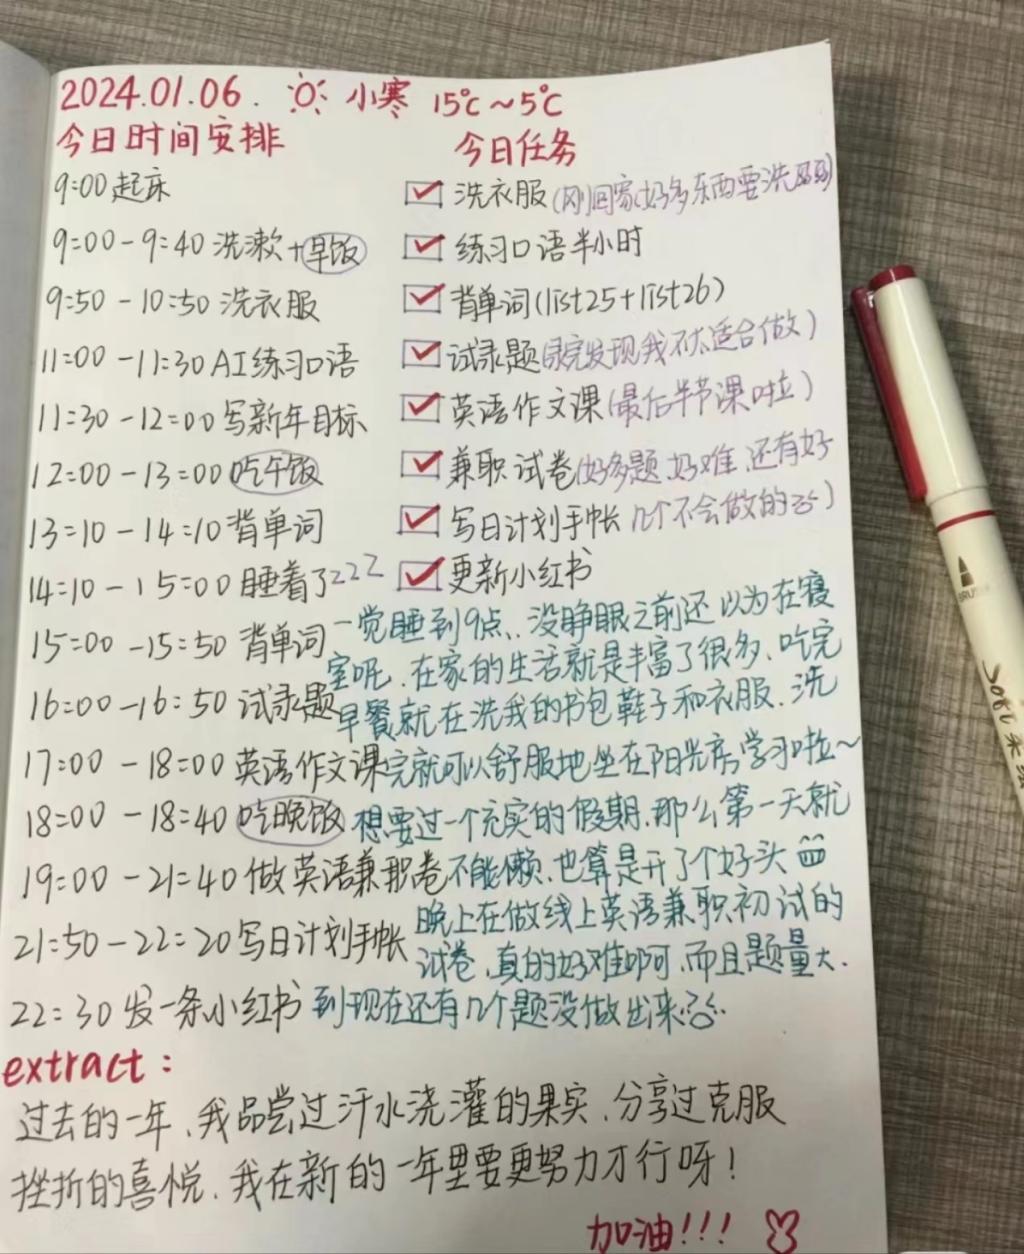 2024.01.06. 小寒 15℃~5℃
今日时间安排
9:00 起床
9:00-9:40 洗漱+早饭
9:50-10:50 洗衣服
11:00-11:30 AI练习口语
11:30-12:00 写新年目标
12:00-13:00 吃午饭
13:10-14:10 背单词
14:10-15:00 睡着了zzZ
15:00-15:50 背单词
16:00-16:50 试录题
17:00-18:00 英语作文课
18:00-18:40 吃晚饭
19:00-21:40 做英语兼职卷
21:50-22:20 写日计划手帐
22:30 发一条小红书
今日任务
洗衣服(刚回家好多东西要洗)
练习口语半小时
背单词(list25+list26)
试录题(录完发现我不太适合做)
英语作文课(最后半节课啦)
兼职试卷(好多题,好难,还有好
写日计划手帐 几个不会做的)
更新小红书
一觉睡到9点,没睁眼之前还以为在寝
室呢,在家的生活就是丰富了很多,吃完
早餐就在洗我的书包鞋子和衣服,洗
完就可以舒服地坐在阳光房学习啦~
想要过一个充实的假期,那么第一天就
不能懒,也算是开了个好头
晚上在做线上英语兼职初试的
试卷,真的好难啊,而且题量大.
到现在还有几个题没做出来
extract:
过去的一年,我品尝过汗水浇灌的果实,分享过克服
挫折的喜悦,我在新的一年里要更努力才行呀!
加油!!!